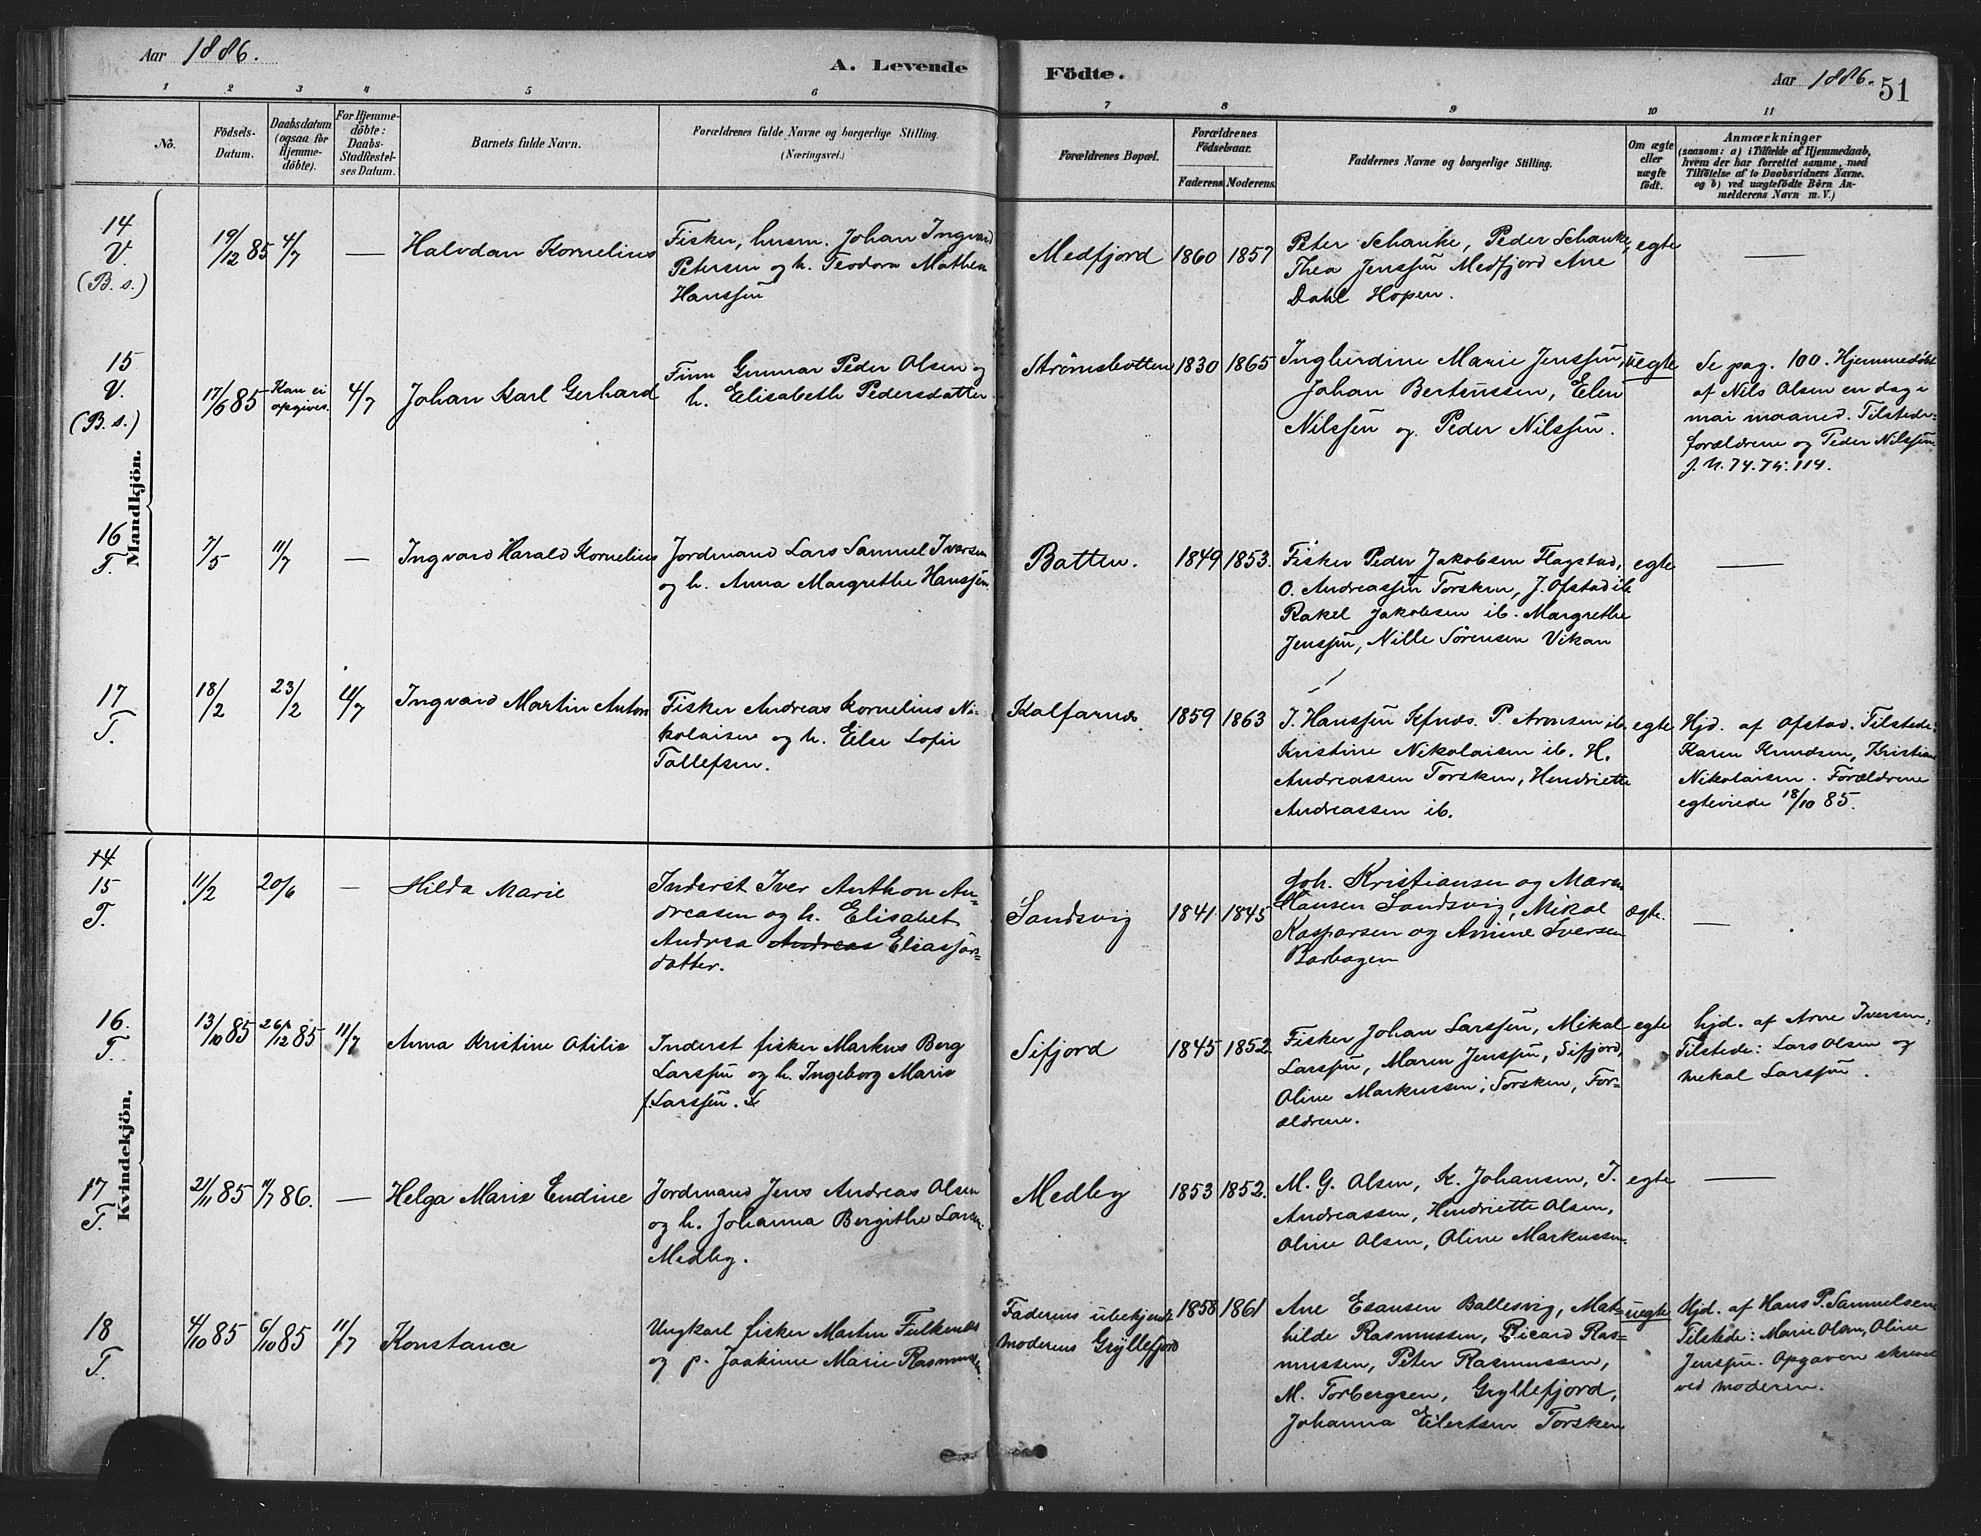 Aar 1886.
A. Levende
Födte.
Aar 1886.
51
1 2 3 4 5 6 7 8 9 10 11
No.
Födsels-
Datum.
Daabsdatum
(ogsaa för
Hjemme-
döbte).
For Hjemme-
döbte:
Daabs-
Stadfæstel-
ses Datum.
Barnets fulde Navn.
Forældrenes fulde Navne og borgerlige Stilling.
(Næringsvei.)
Forældrenes Bopæl.
Forældrenes
Födselsaar.
Faderens Moderens.
Faddernes Navne og borgerlige Stilling.
Om ægte
eller
uægte
födt.
Anmærkninger
(saasom: a) i Tilfælde af Hjemmedaab,
hvem der har forrettet samme, med
Tilföielse af to Daabsvidners Navne.
og b) ved uægtefödte Börn An-
melderens Navn m. V.)
Mandkjön.
14
V
(B. s.)
19/12 85
4/7
—
Halvdan Kornelius
Fisker, husm. Johan Ingvard
Petersen og h. Teodora Mathea
Hanssen
Medfjord
1860
1857
Peter Schanke, Peder Schanke,
Thea Jenssen Medfjord Ane
Dahl Hopen.
egte
—
15
V.
(B. s.)
17/6 85
Kan ei
opgives.
4/7
Johan Karl Gerhard
Finn Gunnar Peder Olsen og
h. Elisabeth Pedersdatter
Strømsbotten
1830
1865
Ingburdine Marie Jenssen,
Johan Berteussen, Elen
Nilssen og Peder Nilssen.
uegte
Se pag. 100. Hjemmedøbt
af Nils Olsen en dag i
mai maaned. Tilstede:
forældrene og Peder Nilssen
J. N. 74. 75. 114.
16
T.
7/5
11/7
—
Ingvard Harald Kornelius
Jordmand Lars Samuel Iversen
og h. Anna Margrethe Hanssen.
Botten.
1849
1853.
Fisker Peder Jakobsen Flagstad,
O. Andreassen Torsken, J. Ofstad ib
Rakel Jakobsen ib. Margrethe
Jenssen, Nille Sørensen Vikan
egte
—
17
T.
18/2
23/2
11/7
Ingvard Martin Anton
Fisker Andreas Kornelius Ni-
kolaisen og h. Else Sofie
Tollefsen.
Kalfarnes
1859
1863
J. Hanssen Kfnds. P. Aronsen ib.
Kristine Nikolaisen ib. H.
Andreassen Torsken, Hendriette
Andreassen ib.
egte
Hjd. af Ofstad. Tilstede:
Karen Knudsen, Kristian
Nikolaisen. Forældrene
egteviede 18/10 85.
Kvindekjön.
14
15
T.
11/2
20/6
—
Hilda Marie
Inderst Iver Anthon An-
dreasen og h. Elisabet
Andrea Andreas Eliasfor-
datter.
Sandsvig
1841
1845
Joh. Kristiansen og Maren
Hansen Sandsvig, Mikal
Kasparsen og Amine Iversen
Barbogen
ægte.
—
16.
T.
13/10 85
26/12 85
11/7
Anna Kristine Otilie
Inderst fisker Markus Berg
Larssen og h. Ingeborg Marie
f. Larssen.
Sifjord
1845
1852.
Fisker Johan Larssen, Mikal
Larssen, Maren Jenssen, Sifjord,
Oline Markussen, Torsken, For-
ældrene.
egte
hjd. af Arne Iversen.
Tilstede: Lars Olsen og
Mekal Larssen.
17
T.
21/11 85
11/7 86.
—
Helga Marie Endine
Jordmand Jens Andreas Olsen
og h. Johanna Bergithe Larsen
Medby.
Medby
1853
1852.
M. G. Olsen, K. Johansen, J.
Andreassen, Hendriette Olsen,
Oline Olsen, Oline Markussen.
egte
—
18
T.
4/10 85
6/10 85
11/7
Konstance
Ungkarl fisker Martin Falkenes
og p. Joakime Marie Rasmussen
Faderens ubekjendt
moderens Gryllefjord
1858
1861
Ane Esansen Ballesvig, Mat-
hilde Rasmussen, Ricard Ras-
mussen, Peter Rasmussen,
M. Torbergsen, Gryllefjord,
Johanna Eilertsen Torsken
uegte
Hjd. af Hans P. Samuelsen
Tilstede: Marie Olsen, Oline
Jenssen. Opgaven skrevet
ved moderen.